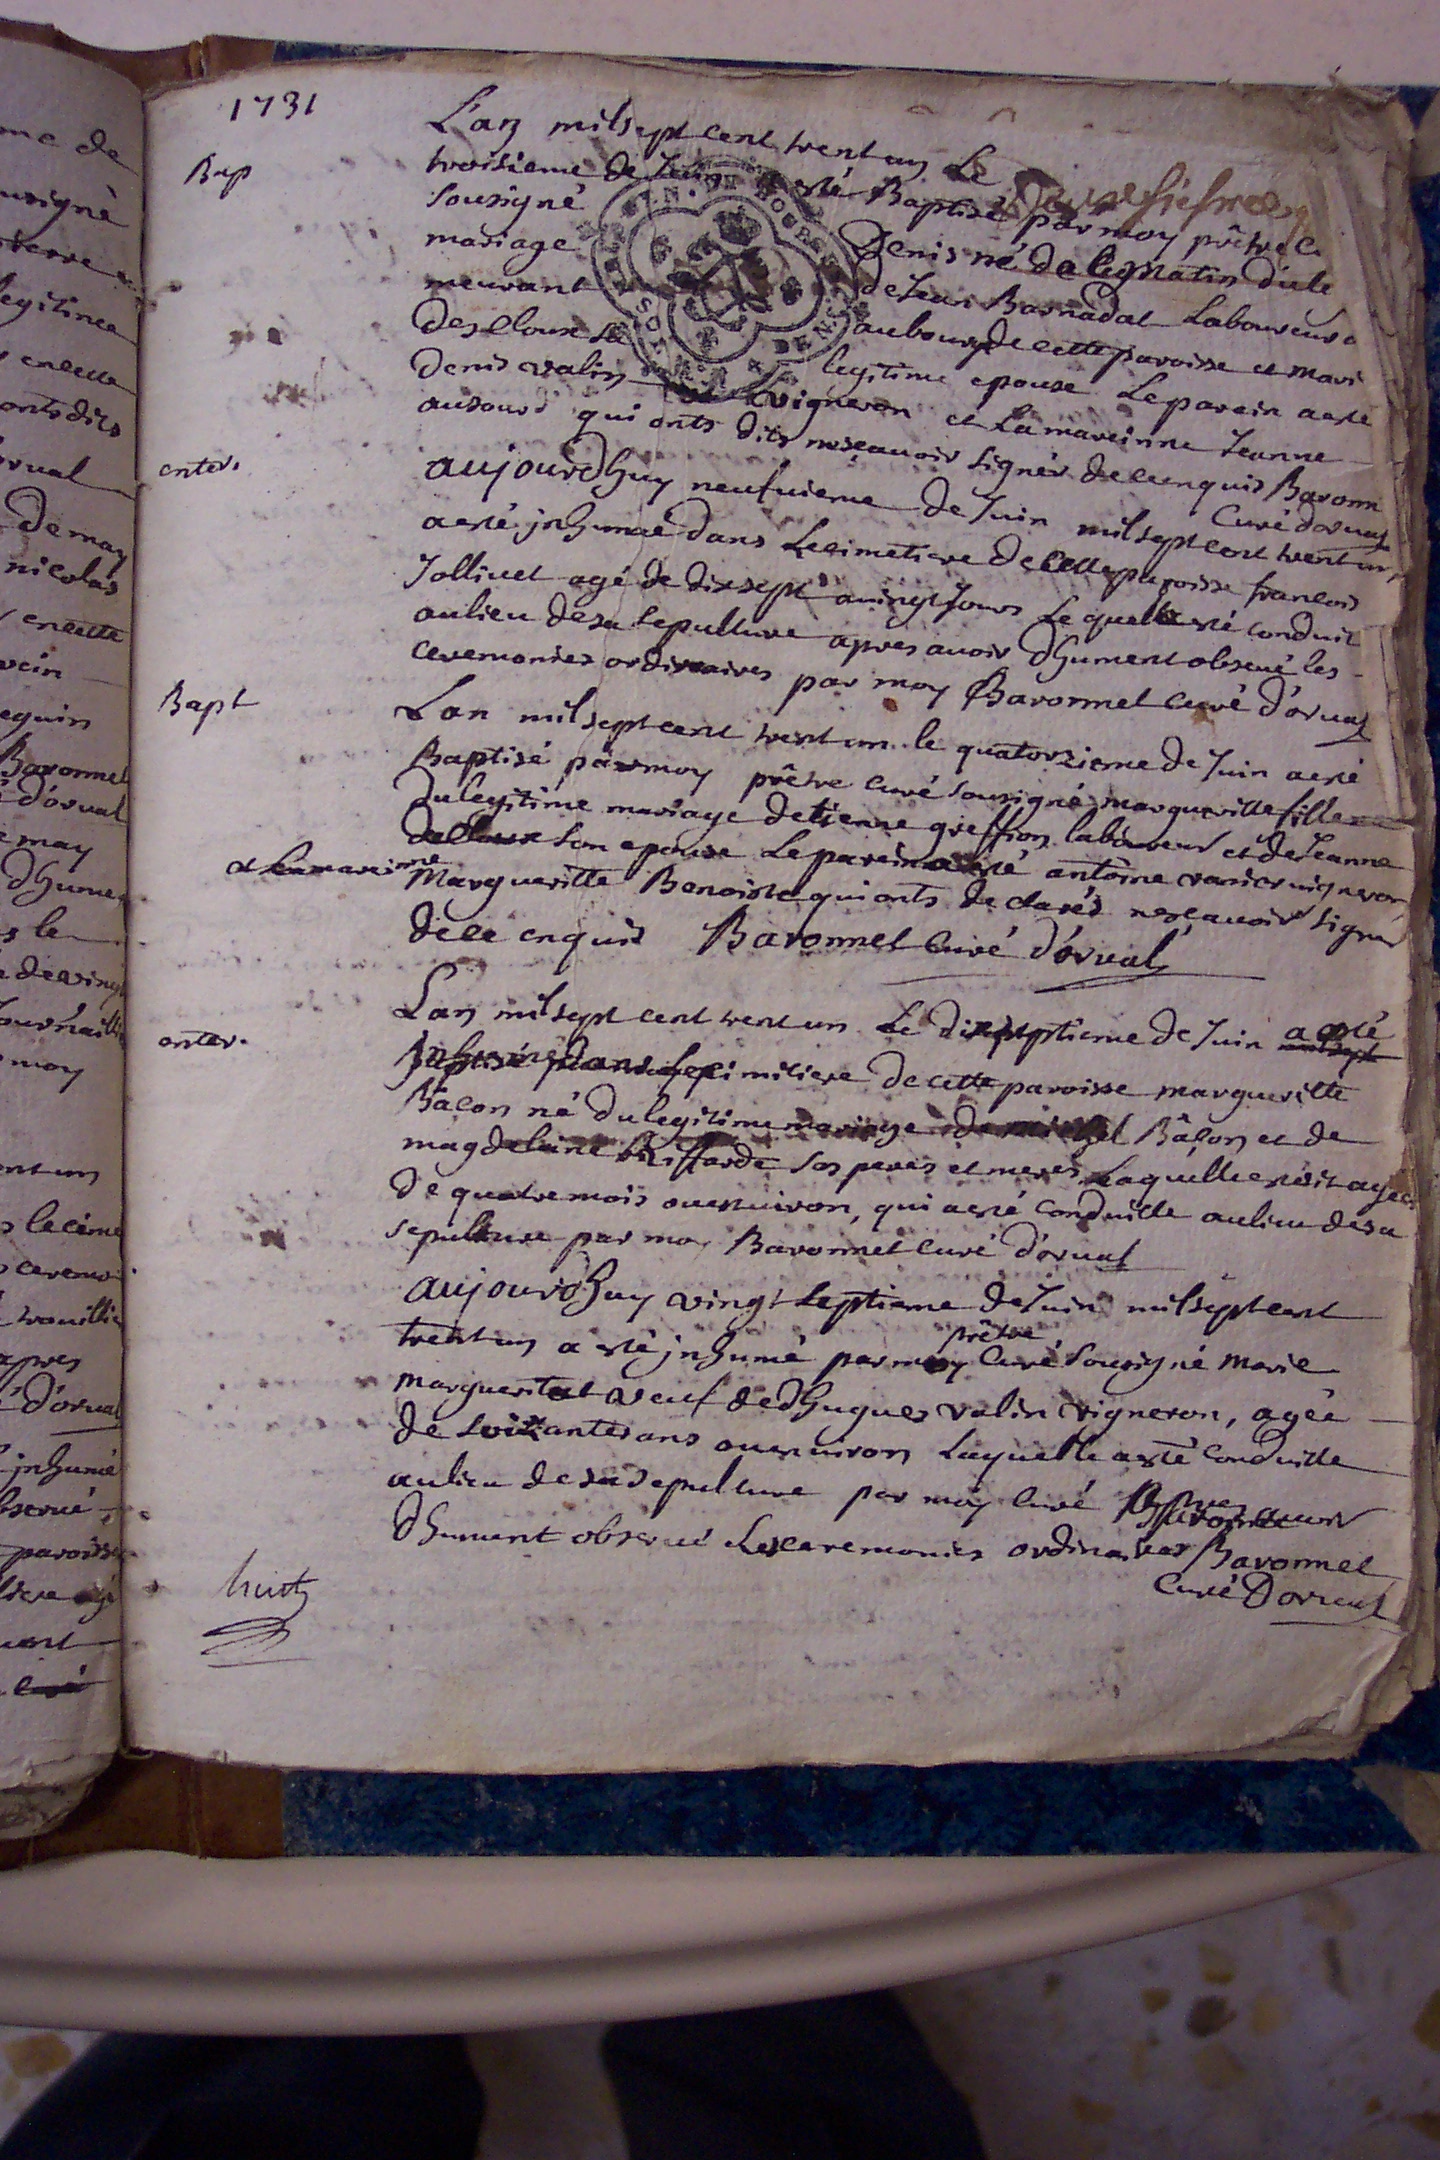 1731
L'an mil sept cent trent un Le
Bap
troisieme de Juin esté Baptisé par moy prêtre c
sousigné Denis né de legmatin d'ule
mariage de Jean Barnadat Laboureur
meurant au bourg de cette paroisse et mari
Descloux sa legitime epouse Le parein aesté
Denis valin vigneron et La mareinne Jeanne
qui onts dits ne sçauoir signér de ce enquis Baronn
Curé d'orual
enter.
aujourdhuy neufuieme de Juin mil sept cent trent un
aesté jnhumé dans Le cimetiere de Cette paroisse francois
Jolliuet agé de dix sept a uingt Jours Le quel aesté conduit
au lieu de sa sepulture apres auoir dhument obserué les
ceremonies ordinaires par moy Baronnet curé d'orual
Bapt
Lan mil sept cent trent un le quatorzieme de Juin aesté
Baptisé par moy prêtre curé sousigné margueritte fille
du legitime mariage detienne greffion laboureur et de Jeanne
descloux son epouse Le parein aesté antoine uigneron
et La mareinne
Margueritte Benoiste qui onts declarés ne sçauoir signér
de ce enquis Baronnet Curé d'orual
enter.
Lan mil sept cent trent un Le dixseptieme de Juin a esté
Jnhumé dans Le cimitiere de cette paroisse margueritte
Bâcon né du legitime mariage de michel Bâcon et de
magdelaine Riffarde ses peres et meres Laquelle estoit agée
de quatre mois ouenuiron, qui aesté conduitte au lieu de sa
sepulture par moy Baronnet curé d'orual
aujourdhuy vingt septieme de Juin mil sept cent
trent un a esté jnhumé par moy prêtre Curé sousigné Marie
veuf de dhugues valin vigneron, agée
de soixantes ans ou enuiron Laquelle aesté Conduitte
au lieu de sa sepulture par moy Curé apres auoir
dhument obserué Les ceremonies ordinaires Baronnet
Curé D'orual
huit